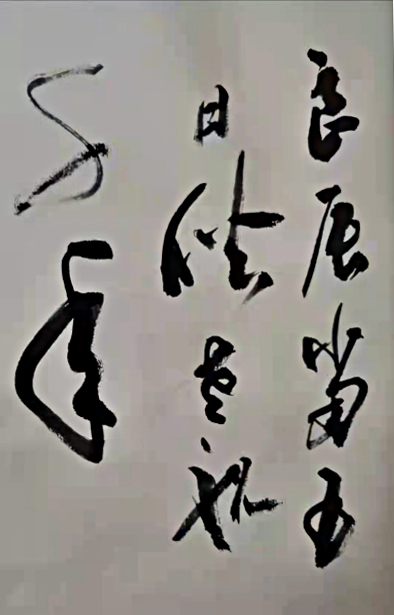 良辰當五
日偕老祝
千年